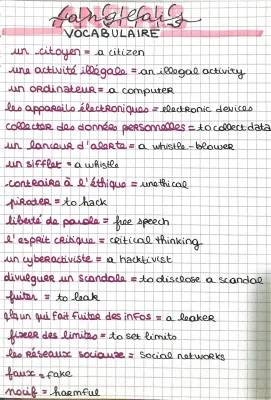 l'anglais
VOCABULAIRE
un citoyen = a citizen
une activité illégale = an illegal activity
un ordinateur = a computer
les appareils électroniques = electronic devices
collecter des données personnelles = to collect data
un lanceur d'alerte = a whistle-blower
un sifflet = a whistle
contraire à l'éthique = unethical
pirater = to hack
liberté de parole = free speech
l'esprit critique = critical thinking
un cyberactiviste = a hacktivist
divulguer un scandale = to disclose a scandal
fuiter = to leak
qlqun qui fait fuiter des infos = a leaker
fixer des limites = to set limits
les réseaux sociaux = social networks
faux = fake
nocif = harmful